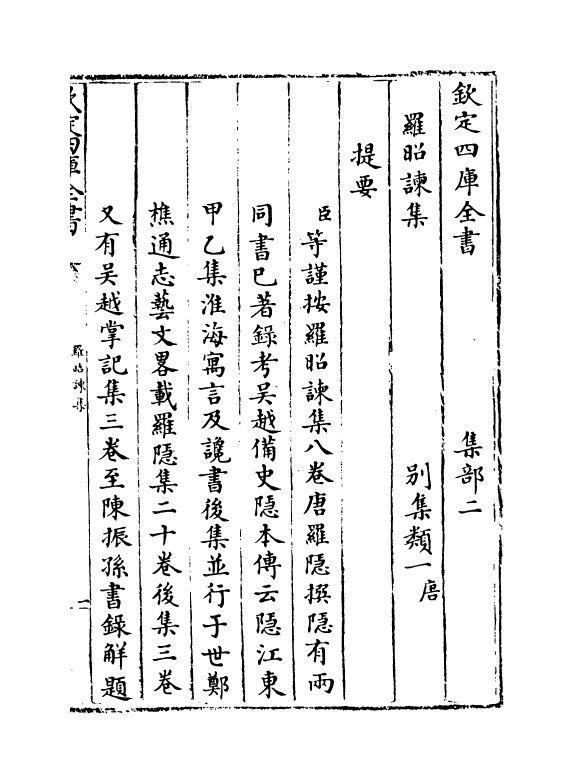 欽定四庫全書　集部二
羅昭諫集　别集類一唐
提要
臣等謹按羅昭諫集八卷唐羅隱撰隱有兩
同書已著錄考吳越備史隱本傳云隱江東
甲乙集淮海寓言及讒書後集並行于世鄭
樵通志藝文畧載羅隱集二十卷後集三卷
又有吳越掌記集三卷至陳振孫書錄解題
欽定四庫全書　羅昭諫集　一